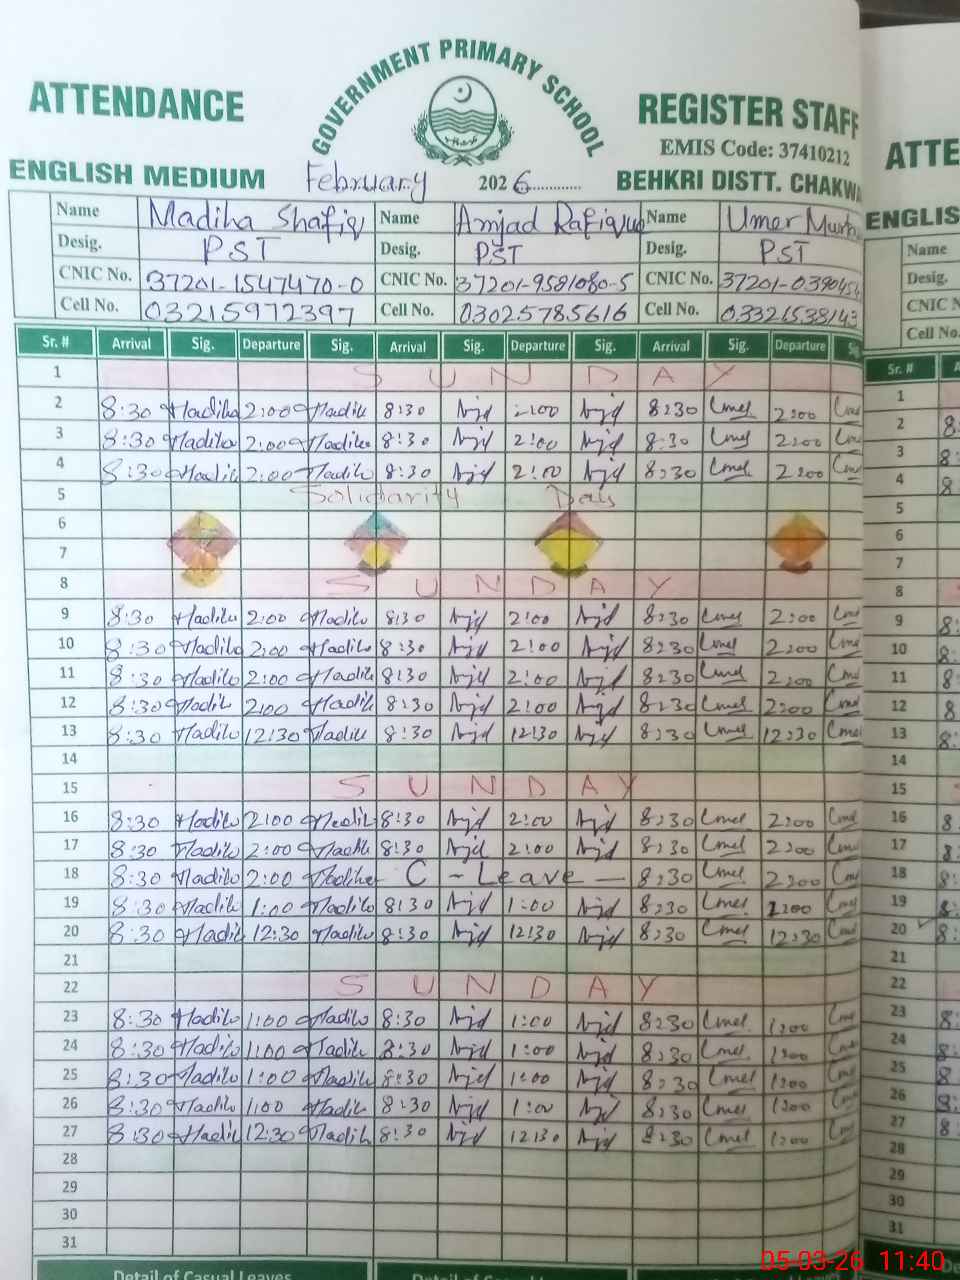 GOVERNMENT PRIMARY SCHOOL
ATTENDANCE REGISTER STAFF
EMIS Code: 37410212
ENGLISH MEDIUM February 2026 BEHKRI DISTT. CHAKWA
Name Madiha Shafiq Name Amjad Rafique Name Umer
Desig. PST Desig. PST Desig. PST
CNIC No. 37201-1547470-0 CNIC No. 37201-9581080-5 CNIC No. 37201-0390454
Cell No. 03215972397 Cell No. 03025785616 Cell No. 03321538143
Sr. # Arrival Sig. Departure Sig. Arrival Sig. Departure Sig. Arrival Sig. Departure
1 SUNDAY
2 8:30 Madiha 2:00 Madiha 8:30 Amjd 2:00 Amjd 8:30 Umer 2:00 Umer
3 8:30 Madiha 2:00 Madiha 8:30 Amjd 2:00 Amjd 8:30 Umer 2:00
4 8:30 Madiha 2:00 Madiha 8:30 Amjd 2:00 Amjd 8:30 Umer 2:00
5 Solidarity Day
6
7
8 SUNDAY
9 8:30 Madiha 2:00 Madiha 8:30 Amjd 2:00 Amjd 8:30 Umer 2:00
10 8:30 Madiha 2:00 Madiha 8:30 Amjd 2:00 Amjd 8:30 Umer 2:00
11 8:30 Madiha 2:00 Madiha 8:30 Amjd 2:00 Amjd 8:30 Umer 2:00
12 8:30 Madiha 2:00 Madiha 8:30 Amjd 2:00 Amjd 8:30 Umer 2:00
13 8:30 Madiha 12:30 Madiha 8:30 Amjd 12:30 Amjd 8:30 Umer 12:30 Umer
14
15 SUNDAY
16 8:30 Madiha 2:00 Madiha 8:30 Amjd 2:00 Amjd 8:30 Umer 2:00
17 8:30 Madiha 2:00 Madiha 8:30 Amjd 2:00 Amjd 8:30 Umer 2:00
18 8:30 Madiha 2:00 Madiha - C - Leave - 8:30 Umer 2:00
19 8:30 Madiha 1:00 Madiha 8:30 Amjd 1:00 Amjd 8:30 Umer 1:00
20 8:30 Madiha 12:30 Madiha 8:30 Amjd 12:30 Amjd 8:30 Umer 12:30
21
22 SUNDAY
23 8:30 Madiha 1:00 Madiha 8:30 Amjd 1:00 Amjd 8:30 Umer 1:00
24 8:30 Madiha 1:00 Madiha 8:30 Amjd 1:00 Amjd 8:30 Umer 1:00
25 8:30 Madiha 1:00 Madiha 8:30 Amjd 1:00 Amjd 8:30 Umer 1:00
26 8:30 Madiha 1:00 Madiha 8:30 Amjd 1:00 Amjd 8:30 Umer 1:00
27 8:30 Madiha 12:30 Madiha 8:30 Amjd 12:30 Amjd 8:30 Umer 1:00
28
29
30
31
Detail of Casual Leaves
ATTE
ENGLIS
Name
Desig.
CNIC N
Cell No.
Sr. #
1
2 8:
3 8:
4 8:
5
6
7
8
9 8:
10 8:
11 8
12 8
13 8:
14
15
16 8
17 8
18 8:
19 8:
20 8:
21
22
23 8:
24 8:
25 8
26 8:
27 8
28
29
30
31
05-03-26 11:40